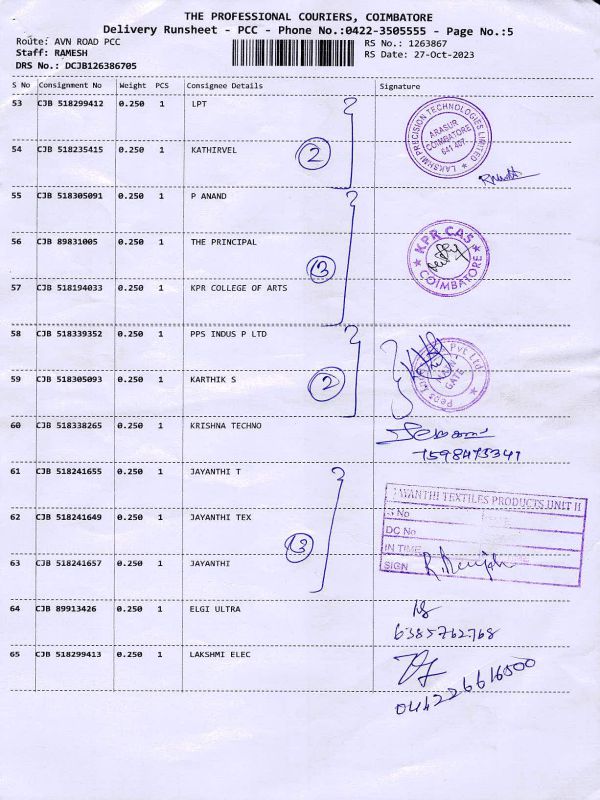 THE PROFESSIONAL COURIERS, COIMBATORE
Delivery Runsheet - PCC - Phone No.:0422-3505555 - Page No.:5
Route: AVN ROAD PCC
RS No.: 1263867
Staff: RAMESH
RS Date: 27-Oct-2023
DRS No.: DCJB126386705
S No Consignment No Weight PCS Consignee Details Signature
53 CJB 518299412 0.250 1 LPT
LAKSHMI PRECISION TECHNOLOGIES LIMITED
ARASUR
COIMBATORE
641 407.
54 CJB 518235415 0.250 1 KATHIRVEL
2
55 CJB 518305091 0.250 1 P ANAND
56 CJB 89831005 0.250 1 THE PRINCIPAL
KPR CAS
COIMBATORE
3
57 CJB 518194033 0.250 1 KPR COLLEGE OF ARTS
58 CJB 518339352 0.250 1 PPS INDUS P LTD
Pvt Ltd
MAIN
GATE
59 CJB 518305093 0.250 1 KARTHIK S
2
60 CJB 518338265 0.250 1 KRISHNA TECHNO
7598473341
61 CJB 518241655 0.250 1 JAYANTHI T
JAYANTHI TEXTILES PRODUCTS UNIT II
S No
62 CJB 518241649 0.250 1 JAYANTHI TEX
DC No
3
IN TIME
63 CJB 518241657 0.250 1 JAYANTHI
SIGN
64 CJB 89913426 0.250 1 ELGI ULTRA
6385762768
65 CJB 518299413 0.250 1 LAKSHMI ELEC
04226616500